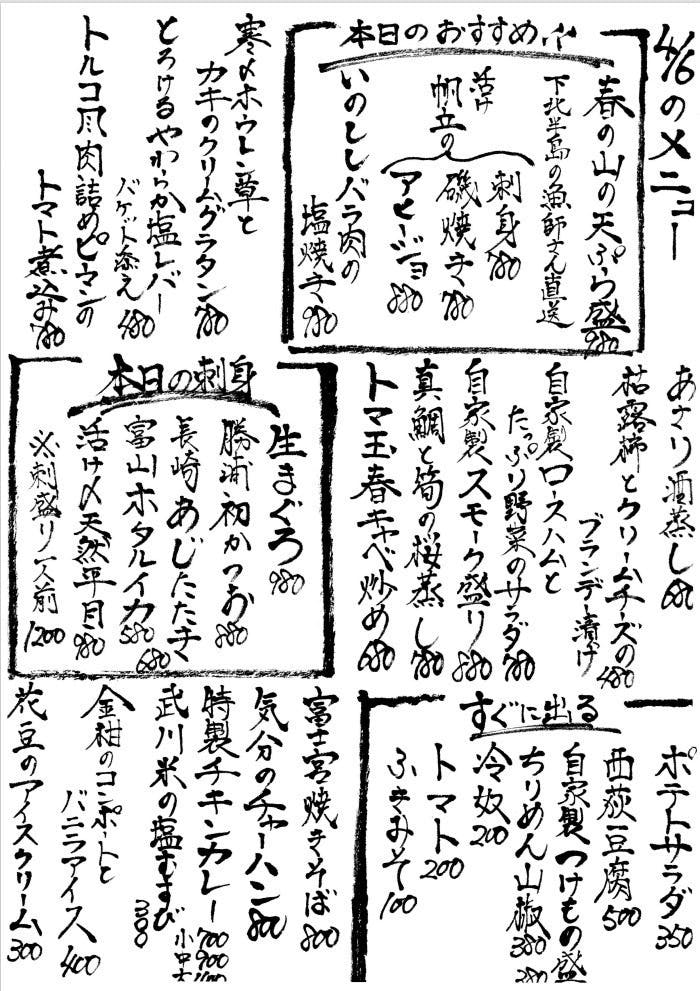 4/6のメニュー
本日のおすすめ
春の山の天ぷら盛
980
下北半島の漁師さん直送
活け
帆立の
刺身
780
磯焼き
780
アヒージョ
880
いのししバラ肉の
塩焼き
980
寒〆ホウレン草と
カキのクリームグラタン
780
とろけるやわらか塩レバー
バゲット添え
480
トルコ風肉詰めピーマンの
トマト煮込み
780
あさり酒蒸し
680
枯露柿とクリームチーズの
ブランデー漬け
480
自家製ロースハムと
たっぷり野菜のサラダ
780
自家製スモーク盛り
880
真鯛と筍の桜蒸し
780
トマ玉春キャベ炒め
680
本日の刺身
生まぐろ
980
勝浦初かつお
880
長崎あじたたき
680
富山ホタルイカ
580
活け〆天然平目
980
※刺盛り一人前
1200
ポテトサラダ
350
西荻豆腐
500
すぐに出る
自家製つけもの盛
380
ちりめん山椒
380
冷奴
200
トマト
200
ふきみそ
100
富士宮焼きそば
800
気分のチャーハン
800
特製チキンカレー
小700
中900
大1100
武川米の塩むすび
300
金柑のコンポートと
バニラアイス
400
花豆のアイスクリーム
300